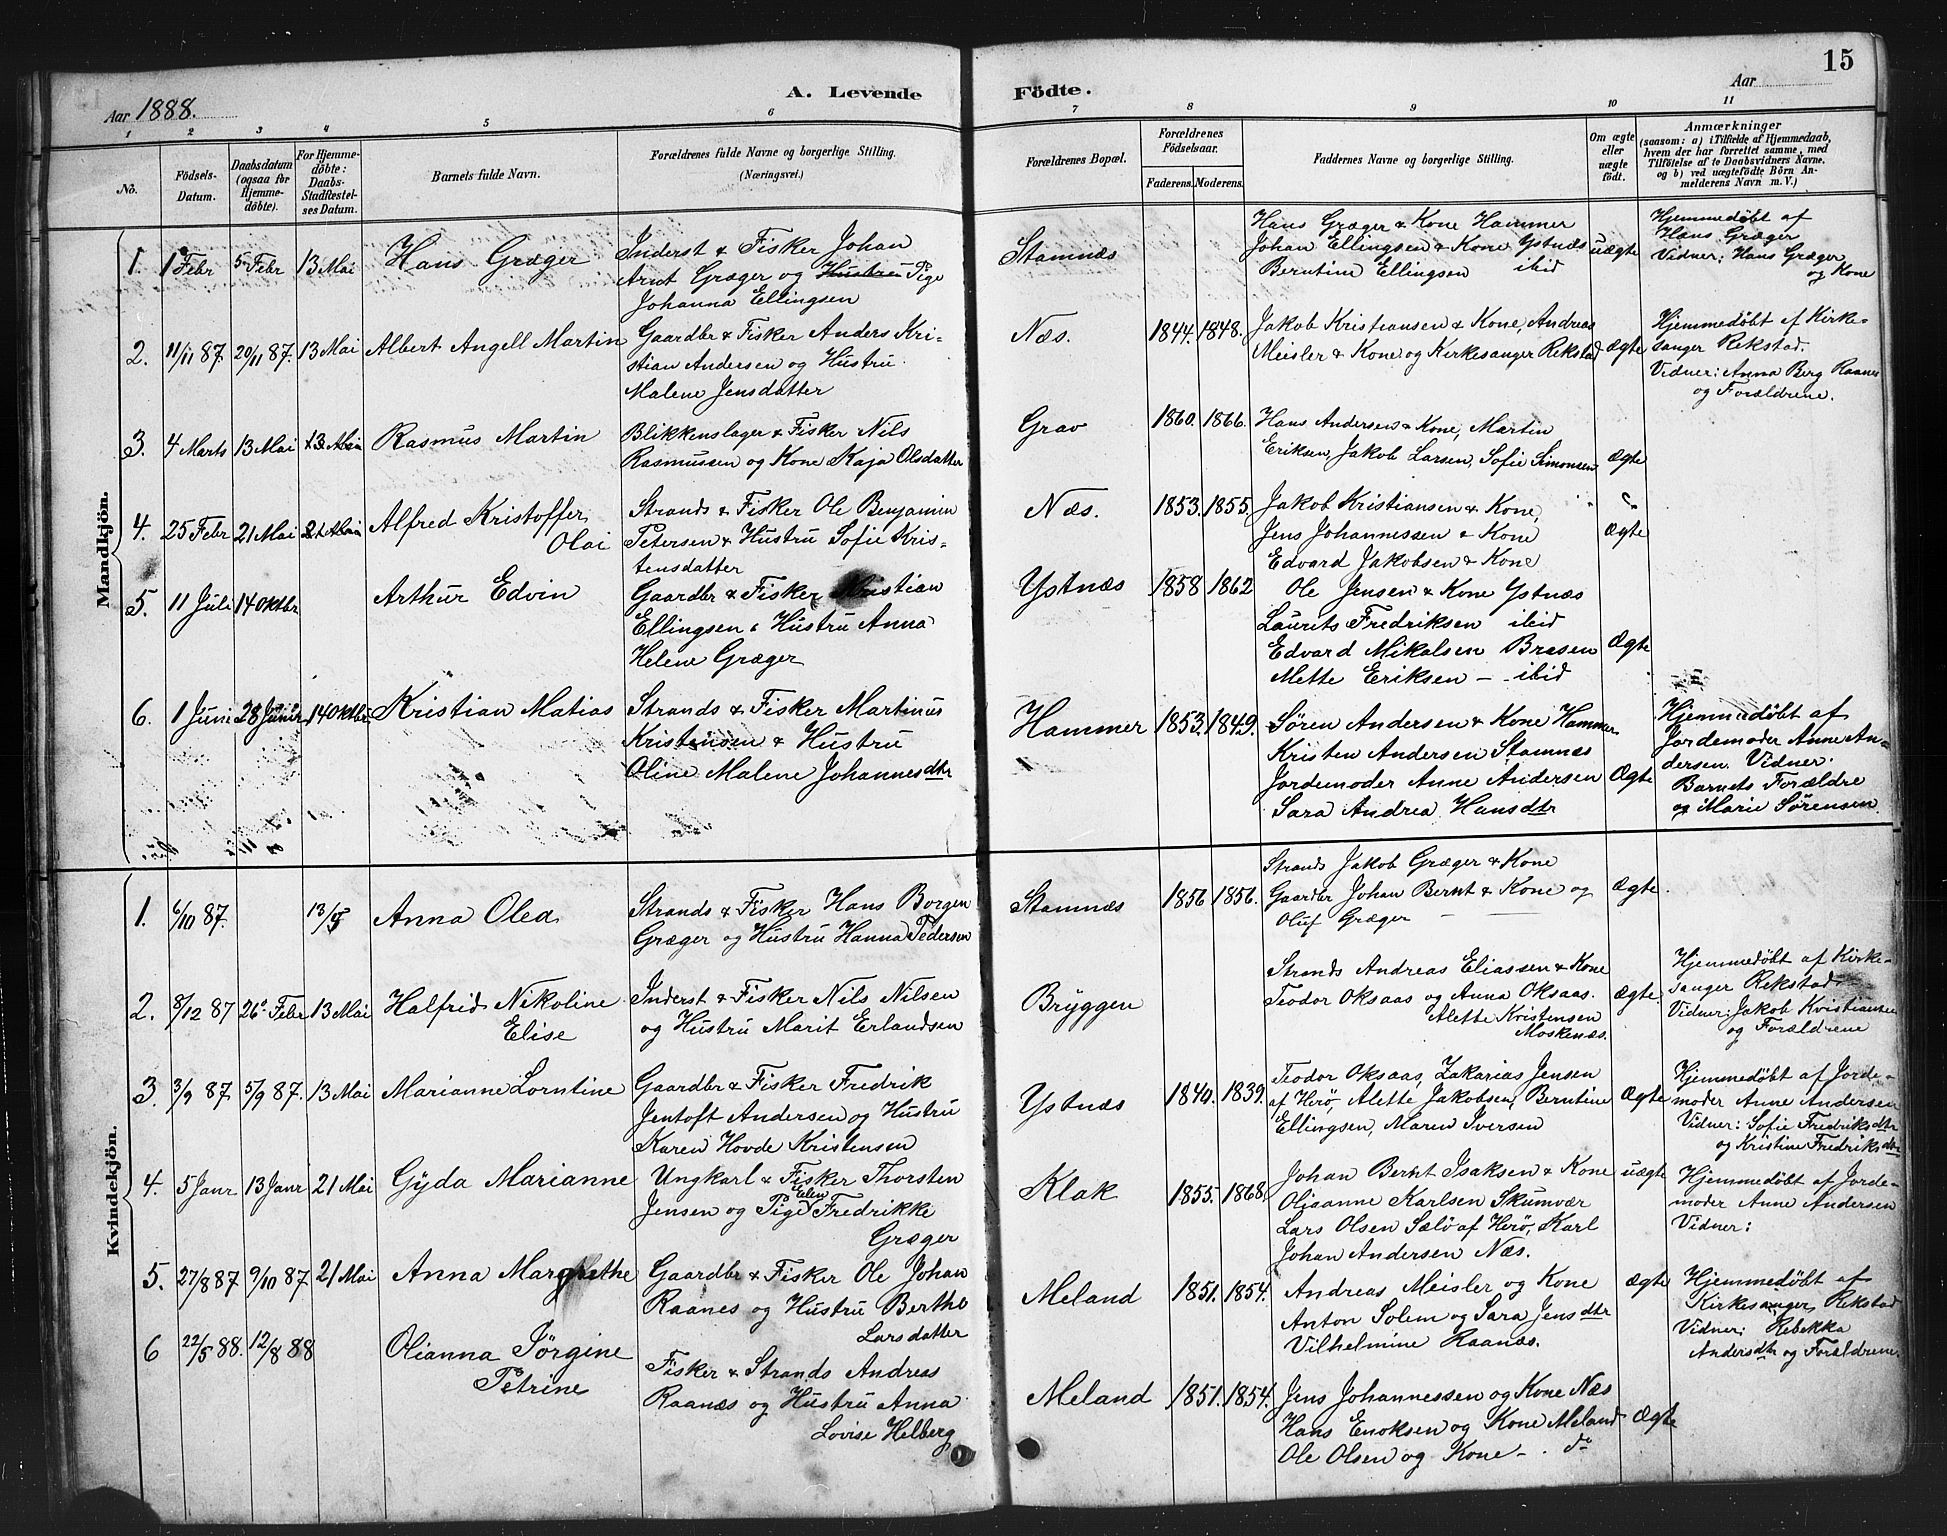 15
Aar 1888.
A. Levende Födte.
Aar
1 2 3 4 5 6 7 8 9 10 11
No.
Födsels-Datum.
Daabsdatum (ogsaa for Hjemmedöbte).
For Hjemmedöbte: Daabs-Stadfestelses Datum.
Barnets fulde Navn.
Forældrenes fulde Navne og borgerlige Stilling. (Næringsvei.)
Forældrenes Bopæl.
Forældrenes Födselsaar.
Faderens. Moderens.
Faddernes Navne og borgerlige Stilling.
Om ægte eller uægte födt.
Anmærkninger
(saasom: a) i Tilfælde af Hjemmedaab,
hvem der har forrettet samme, med
Tilföielse af to Daabsvidners Navne,
og b) ved uægtefödte Börn Anmelderens Navn m. V.)
Mandkjön.
1. 1 Febr 5 Febr 13 Mai Hans Græger
Inderst & Fisker Johan
Arnt Græger og Hustru Pige
Johanna Ellingsen
Stamnæs
Hans Græger & Kone Hammer
Johan Ellingsen & Kone Ystnæs
Berntine Ellingsen ibid
uægte
Hjemmedøbt af
Hans Græger
Vidner: Hans Græger
og Kone
2. 11/11 87 20/11 87. 13 Mai Albert Angell Martin
Gaardbr & Fisker Anders Kri-
stian Andersen og Hustru
Malene Jensdatter
Næs. 1844. 1848.
Jakob Kristiansen & Kone, Andreas
Meisler & Kone og Kirkesanger Rekstad
ægte
Hjemmedøbt af Kirke-
sanger Rekstad.
Vidner: Anna Berg Raanes
og Forældrene.
3. 4 Marts 13 Mai 13 Mai Rasmus Martin
Blikkenslager & Fisker Nils
Rasmussen og Kone Kaja Olsdatter
Grav 1860. 1866.
Hans Andersen & Kone, Martin
Eriksen, Jakob Larsen, Sofie Simonsen
Ægte
4. 25 Febr 21 Mai 21 Mai Alfred Kristoffer
Olai
Strands & Fisker Ole Benjamin
Petersen & Hustru Sofie Kris-
tensdatter
Næs. 1853. 1855.
Jakob Kristiansen & Kone,
Jens Johannessen & Kone
Edvard Jakobsen & Kone
Ægte
5. 11 Juli 14 Oktbr Arthur Edvin
Gaardbr & Fisker Kristian
Ellingsen & Hustru Anna
Helene Græger
Ystnæs 1858 1862
Ole Jensen & Kone Ystnæs
Laurits Fredriksen ibid
Edvard Mikalsen Brasen
Mette Eriksen – ibid
Ægte
6. 1 Juni 28 Juni 14 Oktbr Kristian Matias
Strands & Fisker Martinus
Kristensen & Hustru
Oline Malene Johannesdtr
Hammer 1853. 1849.
Søren Andersen & Kone Hammer
Kristen Andersen Stamnæs
Jordemoder Anne Andersen
Sara Andrea Hansdtr
Ægte
Hjemmedøbt af
Jordemoder Anne An-
dersen. Vidner.
Barnets Forældre
og Marie Sørensen
Kvindekjön.
1. 6/10 87. 13/5 Anna Olea
Strands & Fisker Hans Borgen
Græger og Hustru Hanna Pedersen
Stamnæs 1856 1856.
Strands Jakob Græger & Kone
Gaardbr Johan Bernt & Kone og
Oluf Græger
Ægte.
2. 8/12 87 26 Febr 13 Mai Halfrid Nikoline
Elise
Inderst & Fisker Nils Nilsen
og Hustru Marit Erlandsen
Bryggen
Strands Andreas Eliassen & Kone
Teodor Oksaas og Anna Oksaas.
Alette Kristensen
Moskenæs.
Ægte
Hjemmedøbt af Kirke-
sanger Rekstad
Vidner: Jakob Kristiansen
og Forældrene
3. 3/9 87 5/9 87. 13 Mai Marianne Lorntine
Gaardbr & Fisker Fredrik
Jentoft Andersen og Hustru
Karen Hovde Kristensen
Ystnæs 1840. 1839.
Teodor Oksaas, Zakarias Jensen
af Herø, Alette Jakobsen, Berntine
Ellingsen, Maren Iversen
Ægte
Hjemmedøbt af Jorde-
moder Anne Andersen
Vidner: Sofie Fredriksdtr
og Kristine Fredriksdtr
4. 5 Janr 13 Janr 21 Mai Gyda Marianne
Ungkarl & Fisker Thorsten
Jensen og Pige Elen Fredrikke
Græger
Klak 1855. 1868.
Johan Bernt Isaksen & Kone
Oliaanne Karlsen Skumvær
Lars Olsen Sælø af Herø, Karl
Johan Andersen Næs.
uægte
Hjemmedøbt af Jorde-
moder Anne Andersen
Vidner:
5. 27/8 87 9/10 87 21 Mai Anna Margrethe
Gaardbr & Fisker Ole Johan
Raanes og Hustru Berthe
Larsdatter
Meland 1851. 1854.
Andreas Meisler og Kone
Anton Solem og Sara Jensdtr
Vilhelmine Raanæs.
Ægte
Hjemmedøbt af
Kirkesanger Rekstad
Vidner: Rebekka
Andersdtr og Forældrene
6 22/5 88. 12/8 88 Olianna Jørgine
Petrine
Fisker & Strands Andreas
Raanæs og Hustru Anna
Lovise Helberg
Meland 1851. 1854.
Jens Johannessen og Kone Næs
Hans Enoksen og Kone Meland
Ole Olsen og Kone – do
Ægte